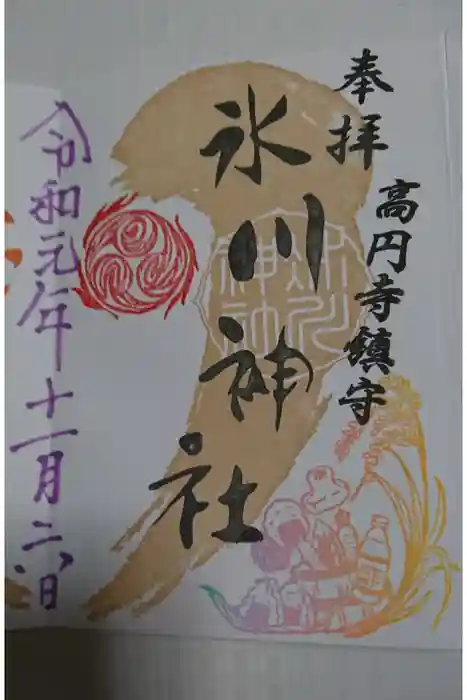 奉拝
高円寺鎮守
氷川神社
令和元年十一月二八日